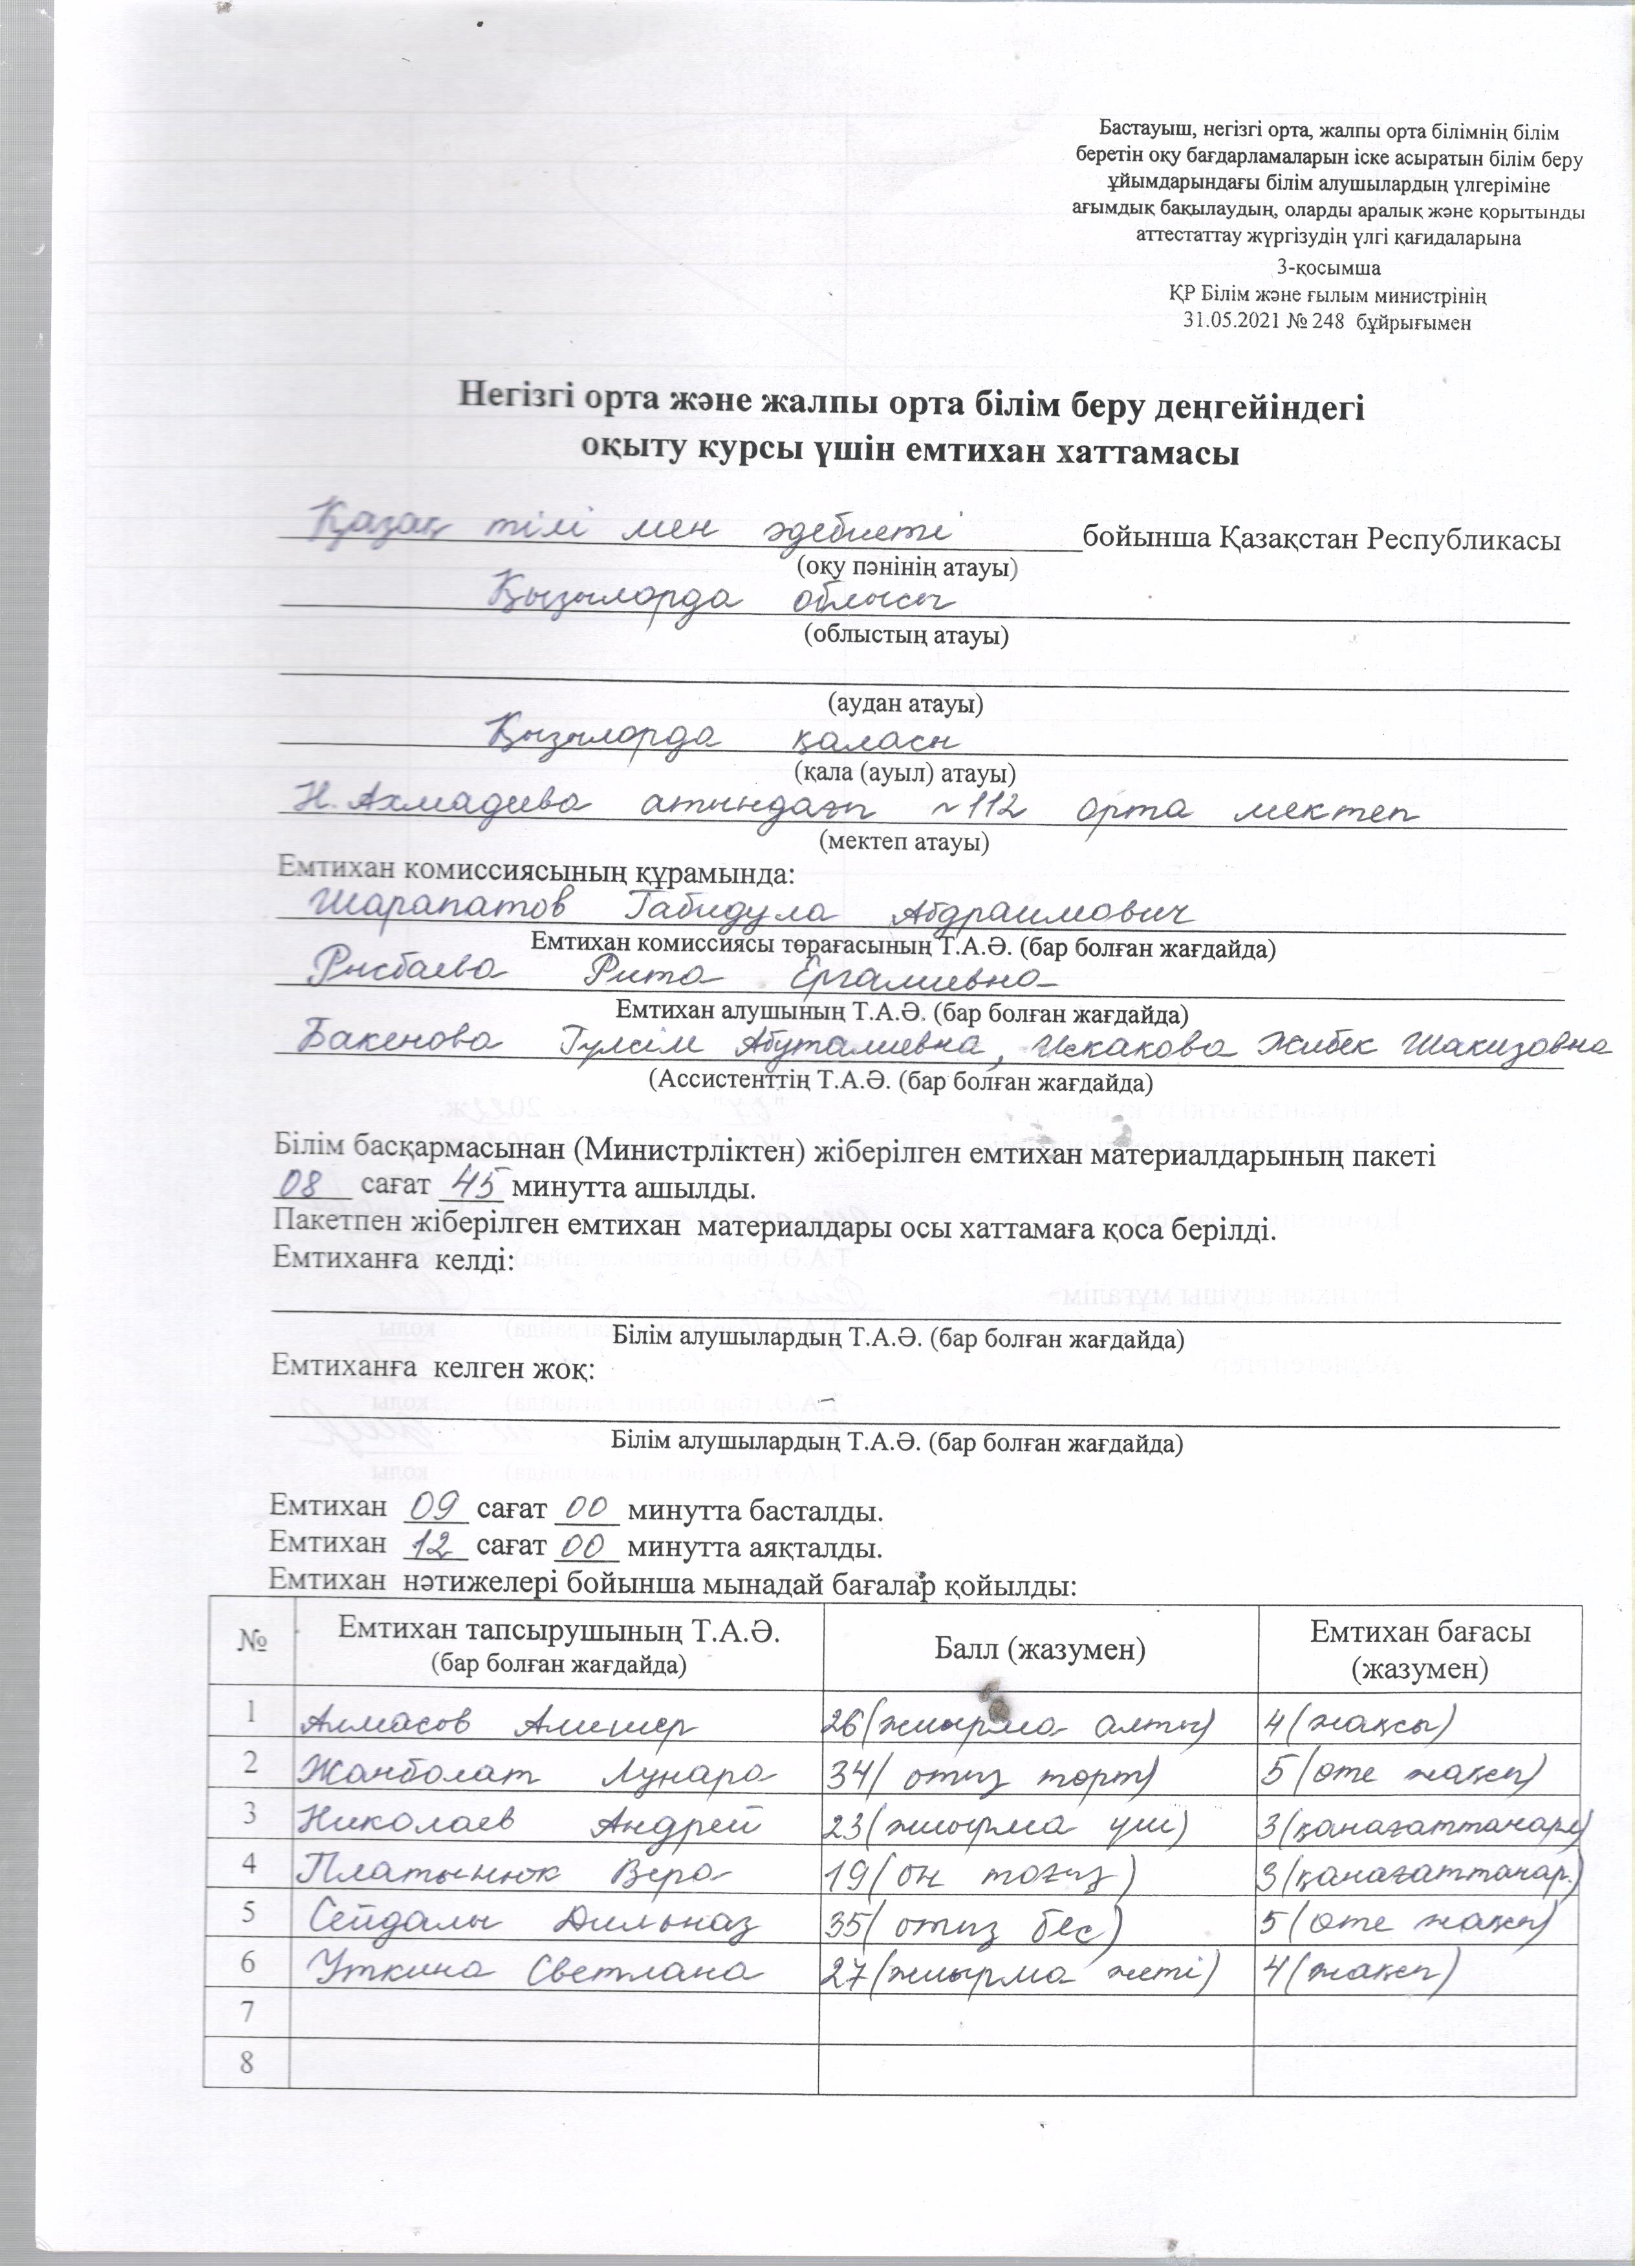 Бастауыш, негізгі орта, жалпы орта білімнің білім
беретін оқу бағдарламаларын іске асыратын білім беру
ұйымдарындағы білім алушылардың үлгеріміне
ағымдық бақылаудың, оларды аралық және қорытынды
аттестаттау жүргізудің үлгі қағидаларына
3-қосымша
ҚР Білім және ғылым министрінің
31.05.2021 № 248 бұйрығымен
Негізгі орта және жалпы орта білім беру деңгейіндегі
оқыту курсы үшін емтихан хаттамасы
Қазақ тілі мен әдебиеті бойынша Қазақстан Республикасы
(оқу пәнінің атауы)
Қызылорда облысы
(облыстың атауы)
(аудан атауы)
Қызылорда қаласы
(қала (ауыл) атауы)
Н. Ахмадиева атындағы №112 орта мектеп
(мектеп атауы)
Емтихан комиссиясының құрамында:
Шарапатов Габидула Абдраимович
Емтихан комиссиясы төрағасының Т.А.Ә. (бар болған жағдайда)
Рысбаева Рита Ергалиевна
Емтихан алушының Т.А.Ә. (бар болған жағдайда)
Бакенова Гүлсім Абуталиевна, Искакова Жибек Шакизовна
(Ассистенттің Т.А.Ә. (бар болған жағдайда)
Білім басқармасынан (Министрліктен) жіберілген емтихан материалдарының пакеті
08 сағат 45 минутта ашылды.
Пакетпен жіберілген емтихан материалдары осы хаттамаға қоса берілді.
Емтиханға келді:
Білім алушылардың Т.А.Ә. (бар болған жағдайда)
Емтиханға келген жоқ:
–
Білім алушылардың Т.А.Ә. (бар болған жағдайда)
Емтихан 09 сағат 00 минутта басталды.
Емтихан 12 сағат 00 минутта аяқталды.
Емтихан нәтижелері бойынша мынадай бағалар қойылды:
№ Емтихан тапсырушының Т.А.Ә. (бар болған жағдайда) Балл (жазумен) Емтихан бағасы (жазумен)
1 Алмасов Алишер 26 (жиырма алты) 4 (жақсы)
2 Жанболат Лунара 34 ( отыз төрт) 5 (өте жақсы)
3 Николаев Андрей 23 (жиырма үш) 3 (қанағаттанарл)
4 Платынюк Вера 19 ( он тоғыз ) 3 (қанағаттанар.)
5 Сейдалы Дильназ 35 ( отыз бес) 5 (өте жақсы)
6 Уткина Светлана 27 (жиырма жеті) 4 (жақсы)
7
8